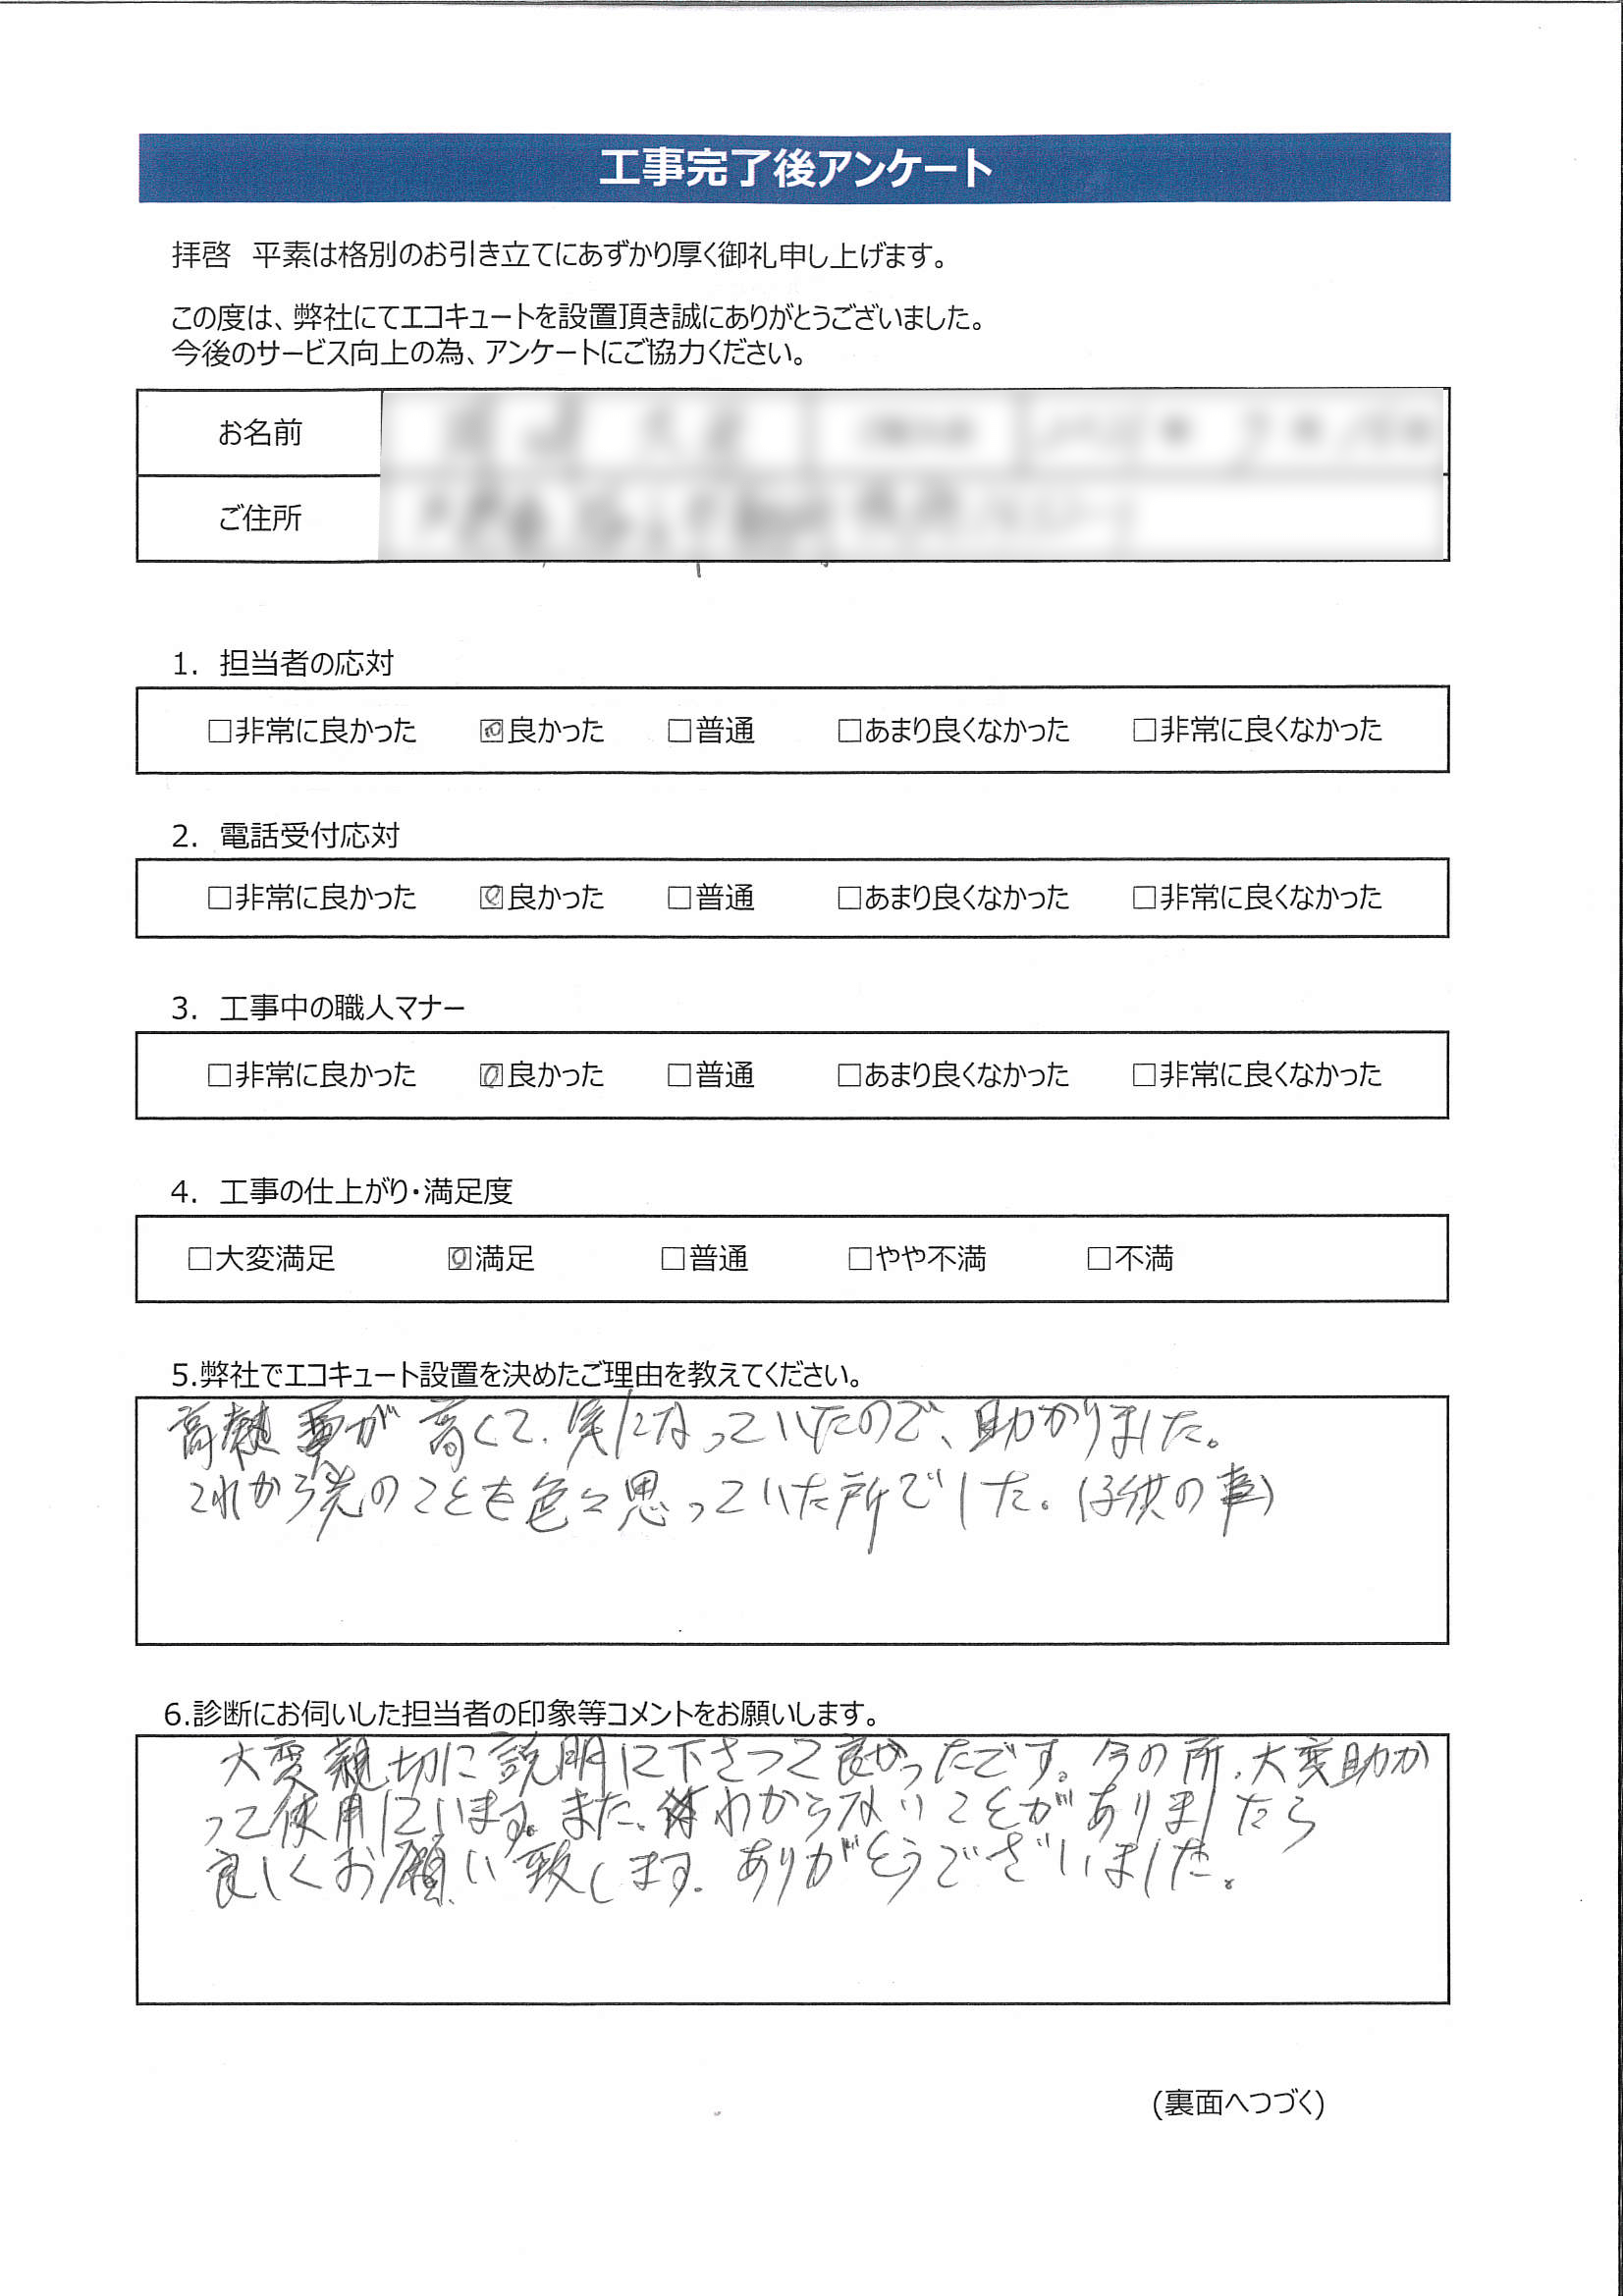 工事完了後アンケート
拝啓　平素は格別のお引き立てにあずかり厚く御礼申し上げます。
この度は、弊社にてエコキュートを設置頂き誠にありがとうございました。
今後のサービス向上の為、アンケートにご協力ください。
お名前
ご住所
1. 担当者の応対
□非常に良かった ☑良かった □普通 □あまり良くなかった □非常に良くなかった
2. 電話受付応対
□非常に良かった ☑良かった □普通 □あまり良くなかった □非常に良くなかった
3. 工事中の職人マナー
□非常に良かった ☑良かった □普通 □あまり良くなかった □非常に良くなかった
4. 工事の仕上がり・満足度
□大変満足 ☑満足 □普通 □やや不満 □不満
5.弊社でエコキュート設置を決めたご理由を教えてください。
が高くて、気になっていたので、助かりました。
これから先のことを色々思っていた所でした。(子供の事)
6.診断にお伺いした担当者の印象等コメントをお願いします。
大変親切に説明して下さって良かったです。今の所、大変助か
って使用しています。また、わからないことがありましたら
良しくお願い致します。ありがとうございました。
(裏面へつづく)